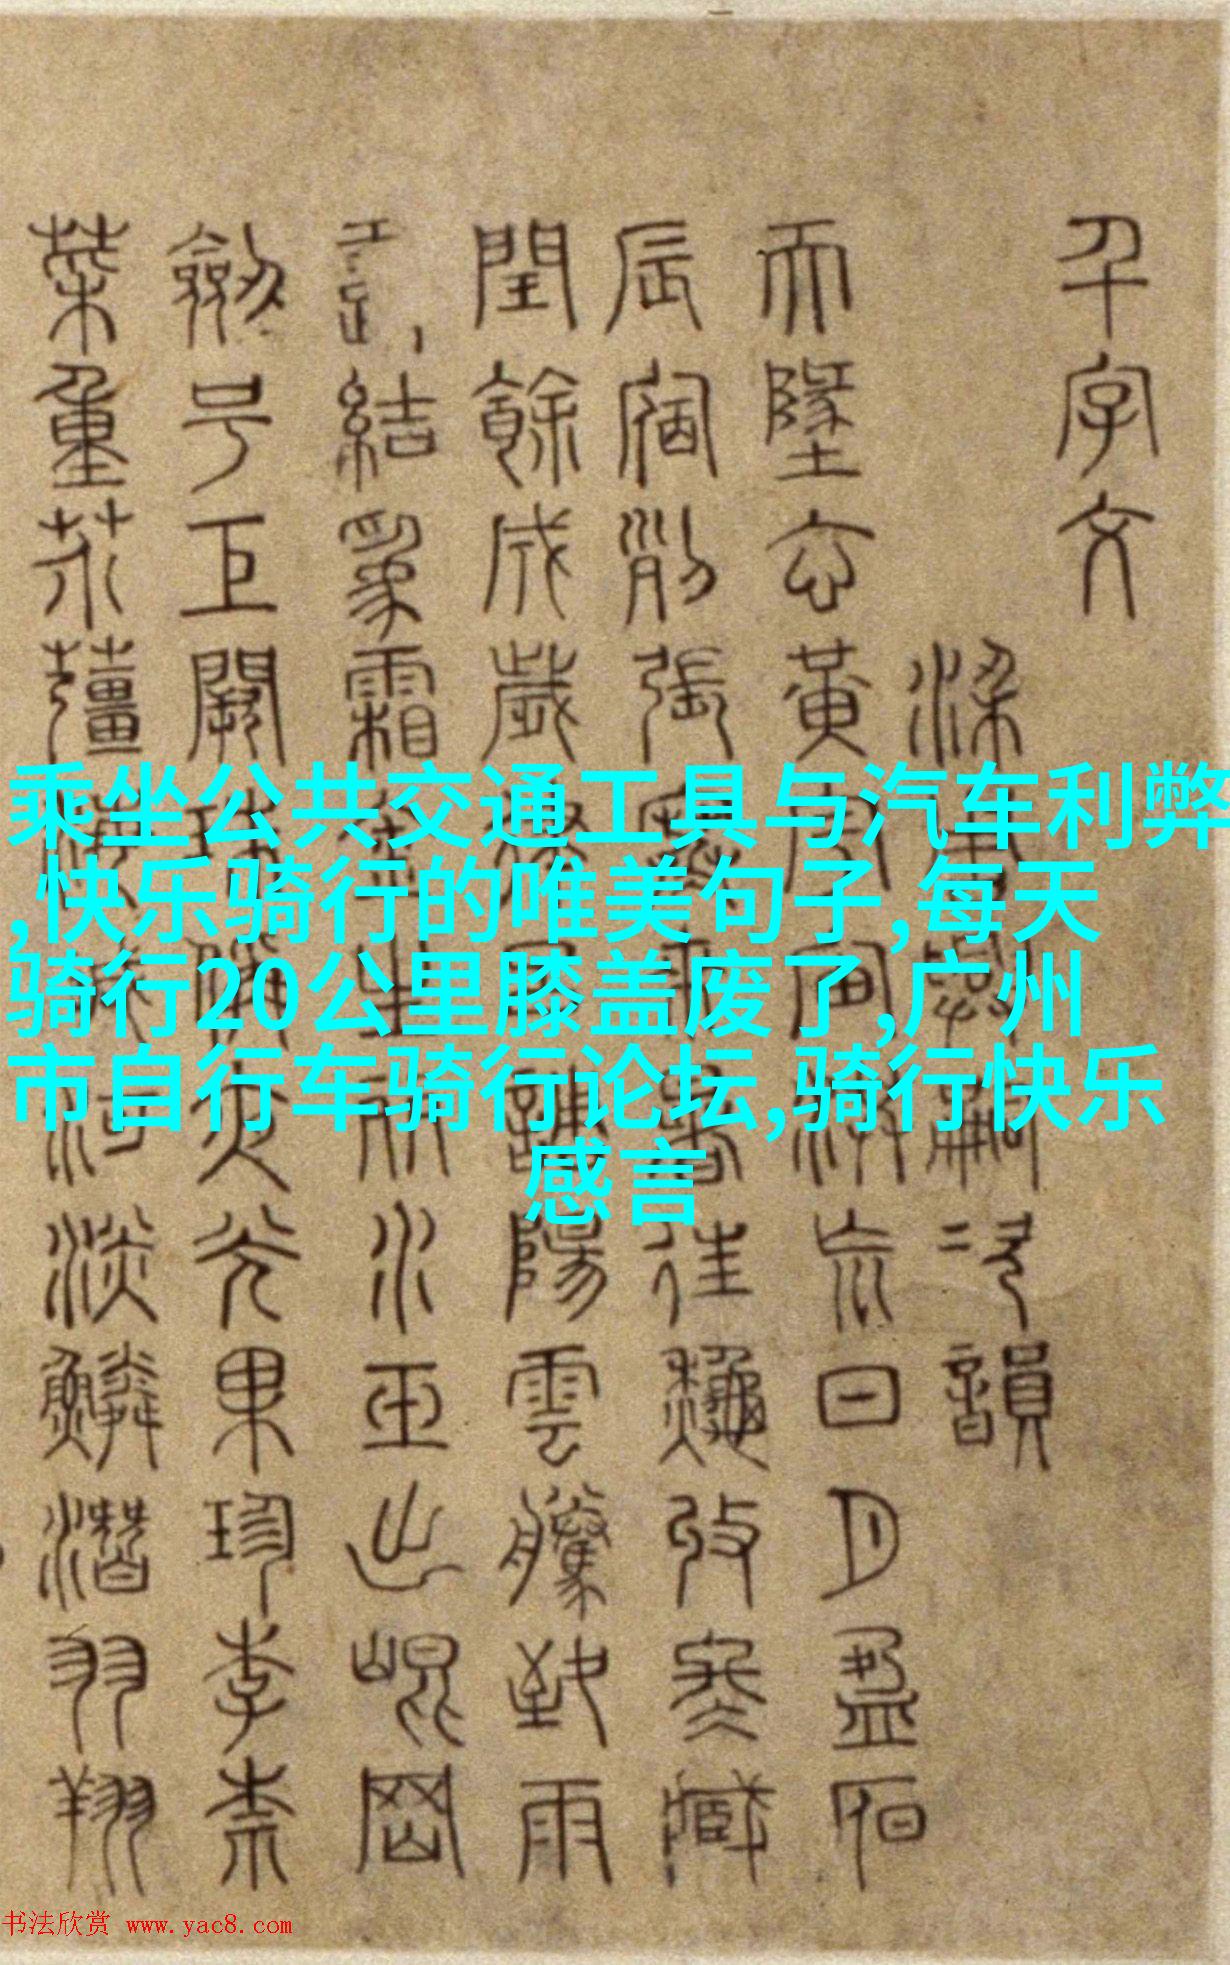 千字文
梁周興嗣次韻
天墬玄黃宇宙洪荒日月盈昃
辰宿列張寒來暑往秋收冬藏
閏餘成歲律呂調陽雲騰致雨
露結爲霜金生麗水玉出崐岡
劒号巨闕珠稱夜光果珍李柰
菜重芥薑海鹹河淡鱗潛羽翔
乘坐公共交通工具与汽车利弊
,快乐骑行的唯美句子,每天
骑行20公里膝盖废了,广州
市自行车骑行论坛,骑行快乐
感言
书法欣赏 www.yac8.com